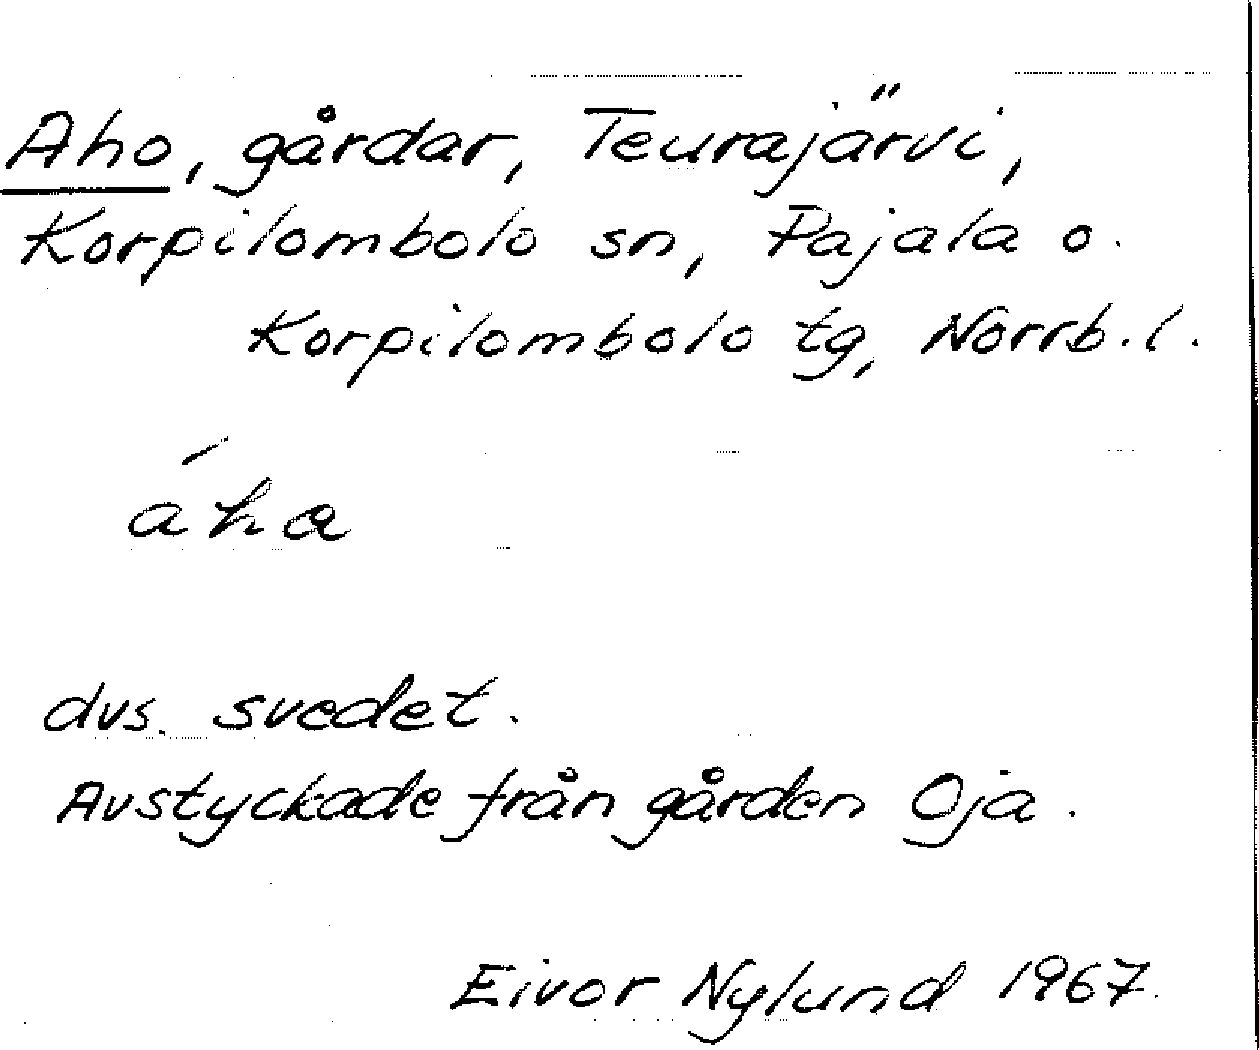 Aho, gårdar, Teurajärvi,
Korpilombolo sn, Pajala o.
Korpilombolo tg, Norrb.l.
áha
dvs. svedet.
Avstyckade från gården Oja.
Eivor Nylund 1967.